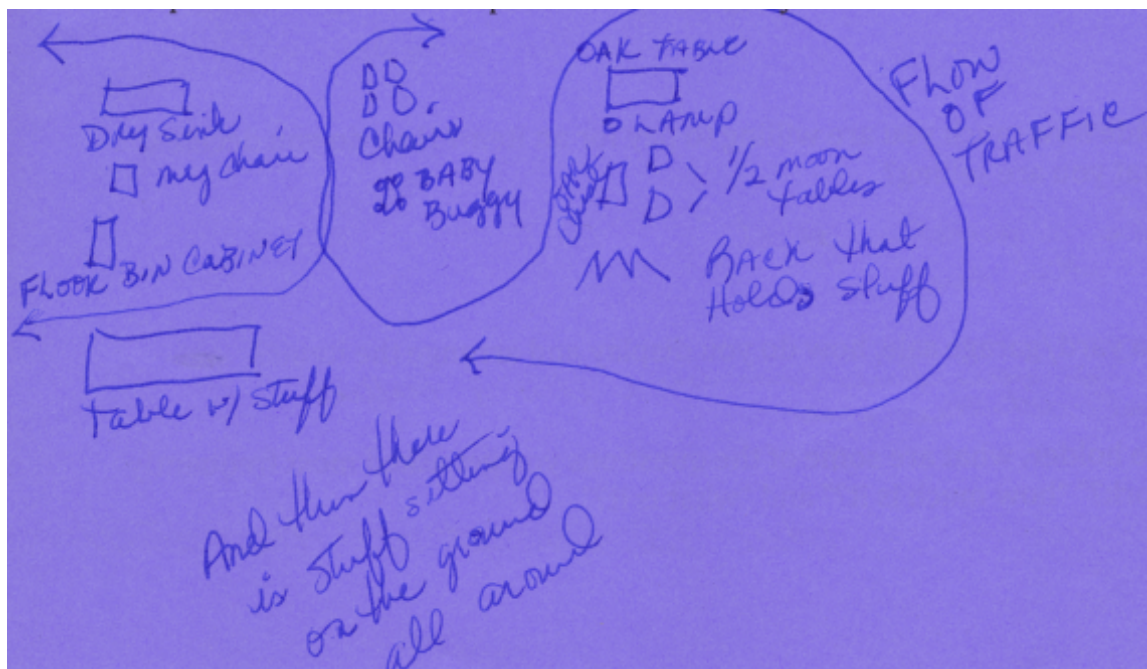 Dry Sink
my chair
FLOOR BIN CABINET
Table w/ stuff
Chairs
BABY
Buggy
OAK TABLE
LAMP
1/2 moon
tables
Rack that
Holds stuff
FLOW
OF
TRAFFIC
And then there
is stuff sitting
on the ground
all around